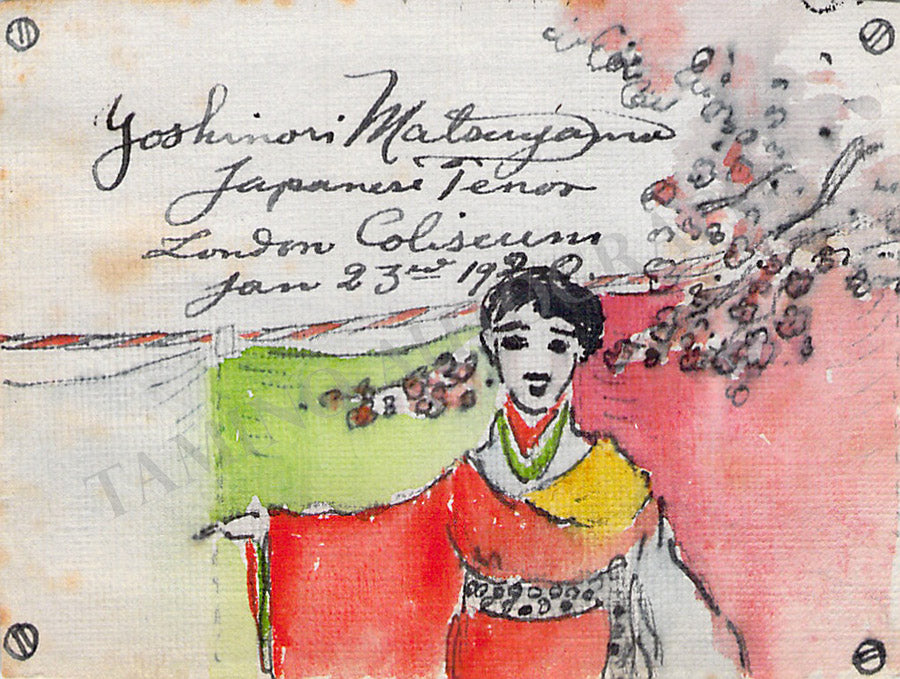 Yoshinori Matsuyama
Japanese Tenor
London Coliseum
Jan 23rd
TAMINO